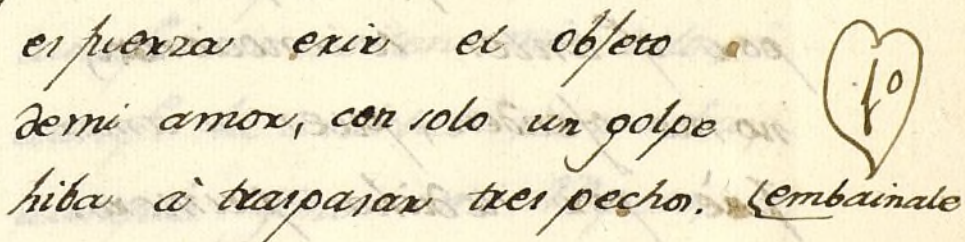 es fuerza erir el objeto
demi amor, con solo un golpe
hiba à traspasar tres pechos. embainale